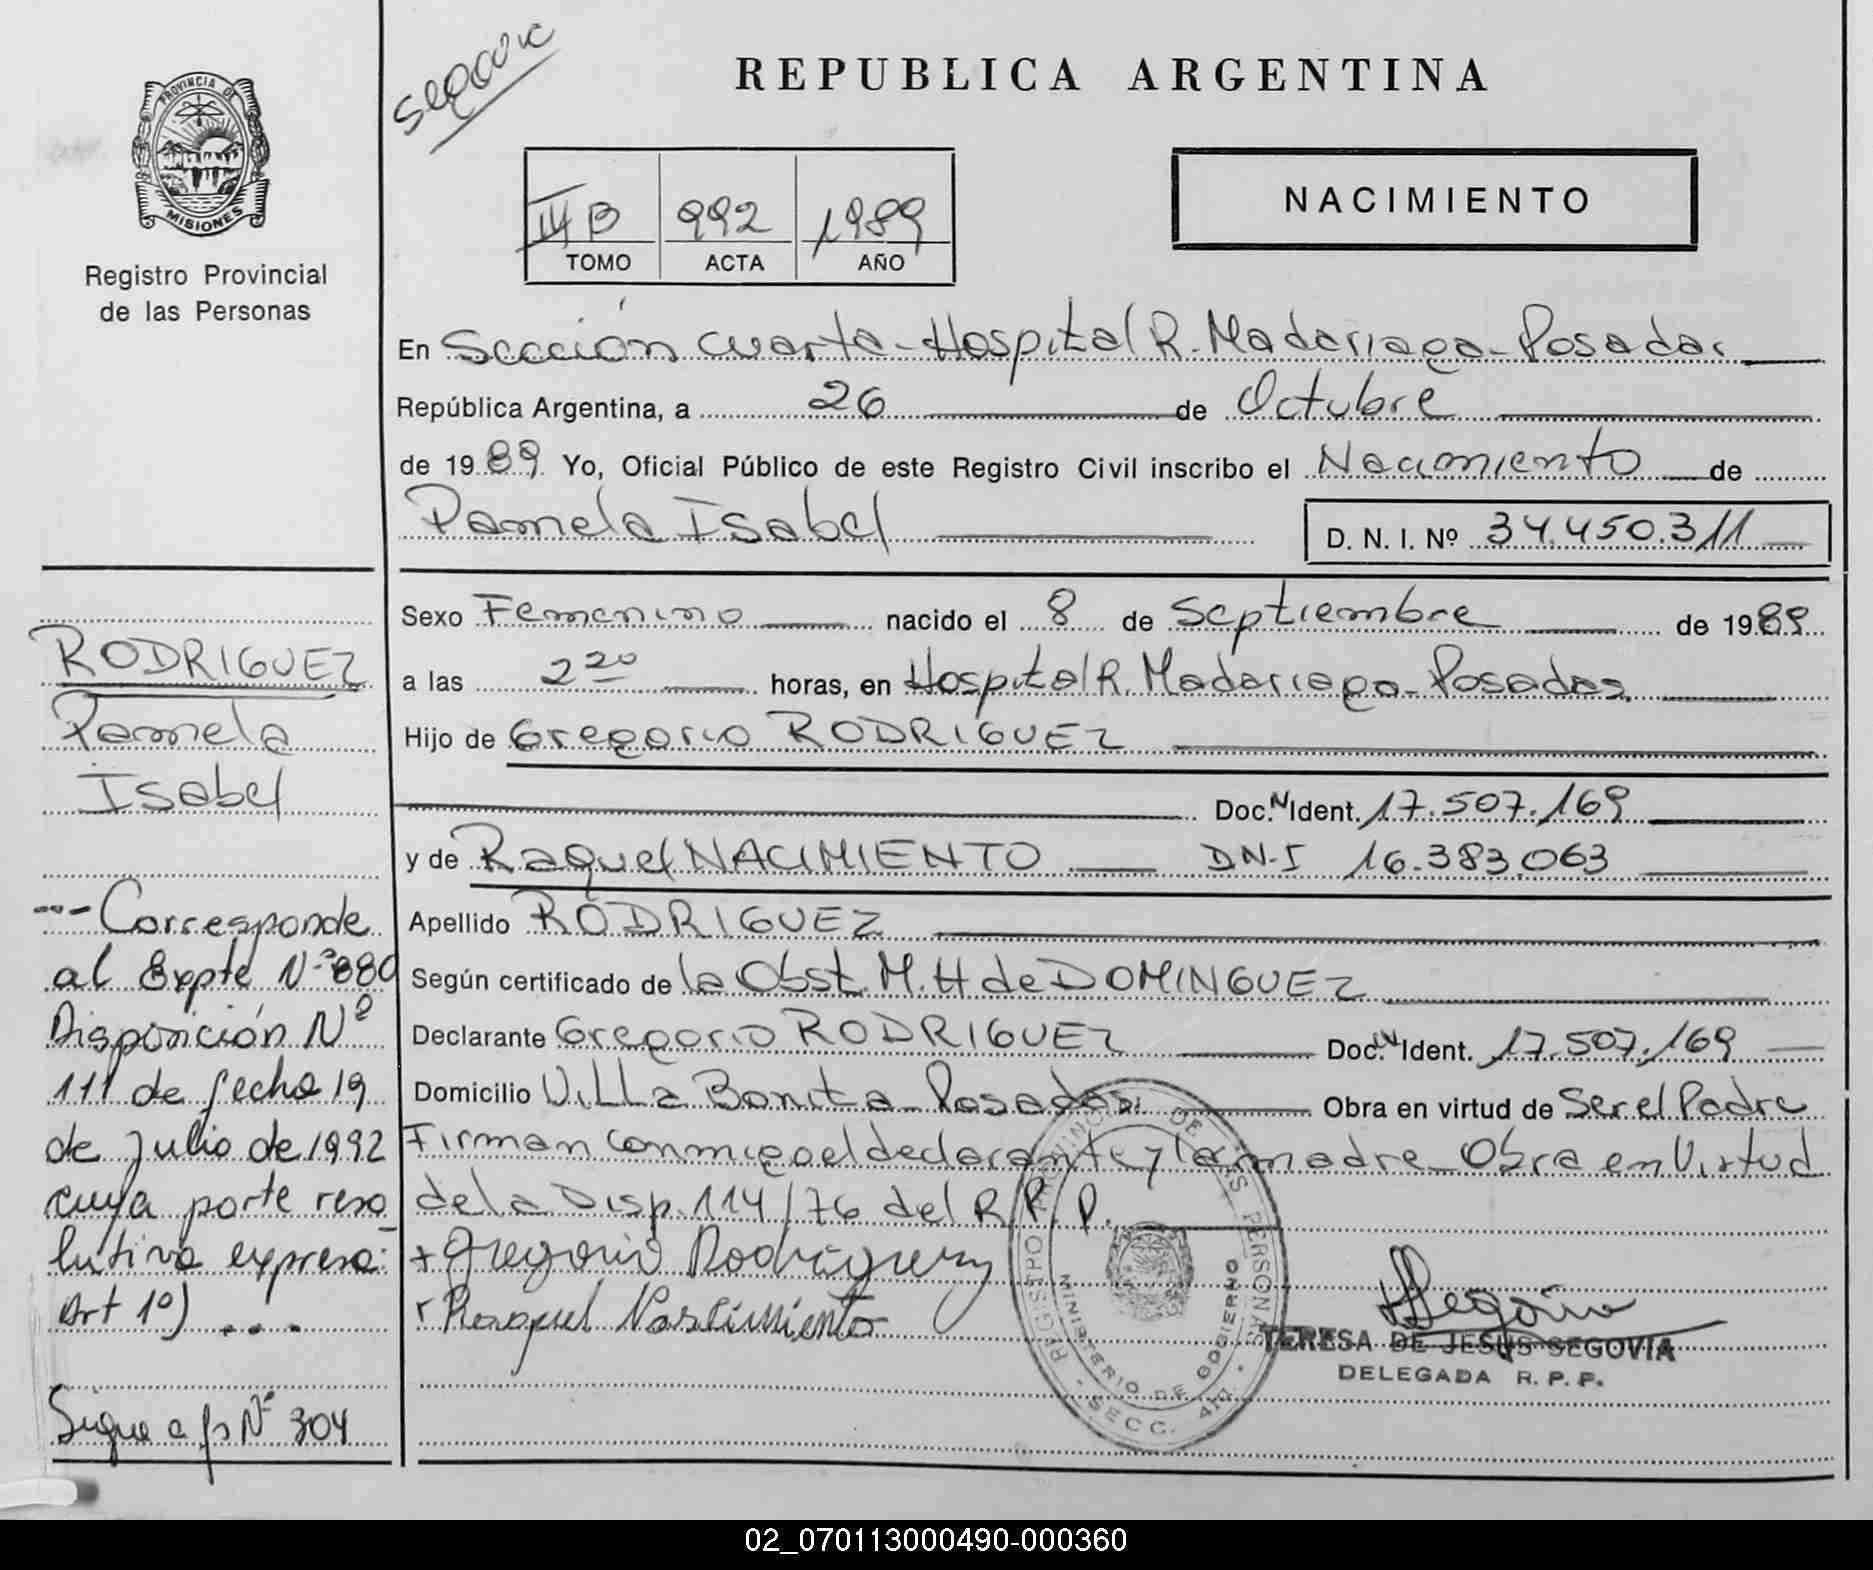 Seccion
REPUBLICA ARGENTINA
PROVINCIA DE
MISIONES
Registro Provincial
de las Personas
III B 992 1989
TOMO ACTA AÑO
NACIMIENTO
En Sección cuarta - Hospital R. Madariaga - Posadas
República Argentina, a 26 de Octubre
de 1989. Yo, Oficial Público de este Registro Civil inscribo el Nacimiento de
Pamela Isabel
D. N. I. Nº 34.450.311
Sexo Femenino nacido el 8 de Septiembre de 1989
a las 2 20 horas, en Hospital R. Madariaga - Posadas.
Hijo de Gregorio RODRIGUEZ
Doc. N Ident. 17.507.169
y de Raquel NACIMIENTO D N-I 16.383.063
Apellido RODRIGUEZ
Según certificado de la Obst. M. H de DOMINGUEZ
Declarante Gregorio RODRIGUEZ Doc. N Ident. 17.507.169
Domicilio Villa Bonita - Posadas. Obra en virtud de Ser el Padre
Firman conmigo el declarante y la madre - Obra en Virtud
de la Disp. 114/76 del R. P. P.
+ Gregorio Rodriguez
Raquel Nascimiento
REGISTRO PROVINCIAL DE LAS PERSONAS
MINISTERIO DE GOBIERNO
- SECC. 4ta. -
Segovia
TERESA DE JESUS SEGOVIA
DELEGADA R. P. P.
RODRIGUEZ
Pamela
Isabel
--- Corresponde
al Expte Nº 880
Disposición Nº
111 de fecha 19
de Julio de 1992
cuya parte reso
lutiva expresa:
Art 1º) ...
Sigue a fs Nº 304
02_070113000490-000360